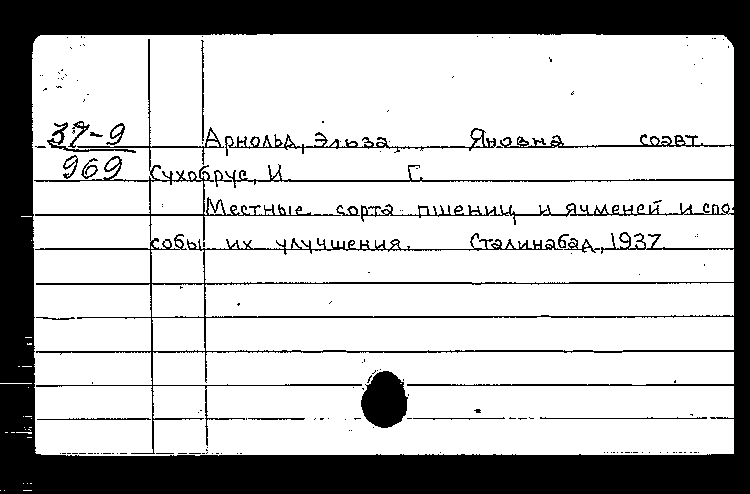 37-9 Арнольд, Эльза Яновна соавт.
969 Сухобрус, И. Г.
Местные сорта пшениц и ячменей и спо-
собы их улучшения. Сталинабад, 1937